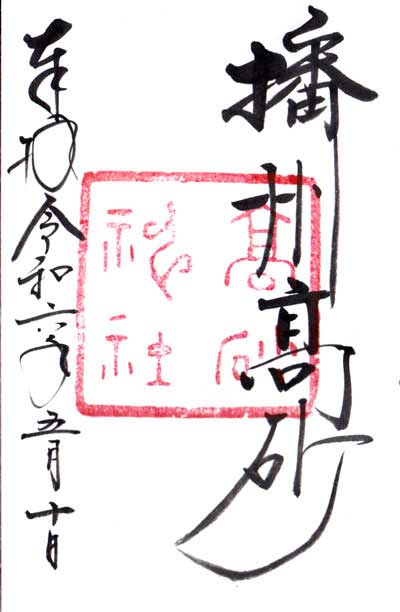 播州高砂
高砂
神社
奉拝 令和六年五月十日